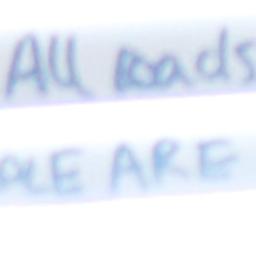 All roads
ARE